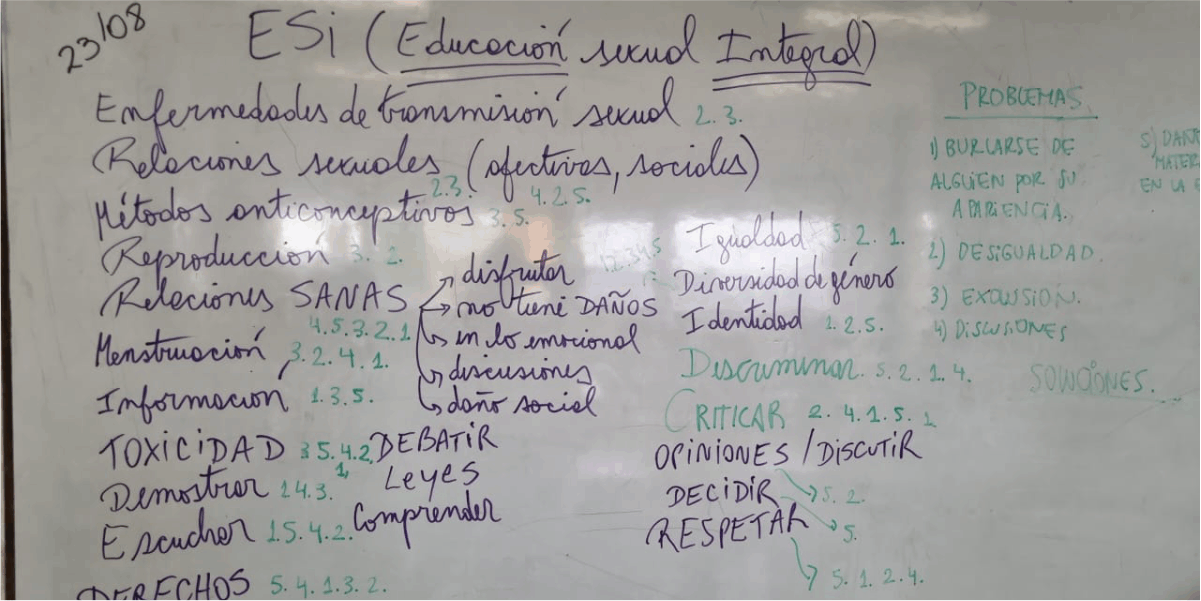 23/08
ESi (Educación sexual Integral)
Enfermedades de transmisión sexual 2.3.
Relaciones sexuales (afectivas, sociales)
2.3. 4.2.5.
Métodos anticonceptivos 3.5.
Reproducción 3.2.
Relaciones SANAS → disfrutar
→ no tiene DAÑOS
4.5.3.2.1
↳ en lo emocional
↳ discusiones
↳ daño social
Menstruación 3.2.4.1.
Información 1.3.5.
TOXICIDAD 3 5.4.2. DEBATIR
1, Leyes
Demostrar 24.3.
Escuchar 15.4.2. Comprender
DERECHOS 5.4.1.3.2.
Igualdad 5.2.1.
1.2.3.4.5
Diversidad de género
Identidad 1.2.5.
Discriminar. 5.2.1.4.
CRITICAR 2.4.1.5.1
OPINIONES / DISCUTIR
DECIDIR → 5.2.
→ 5.
RESPETAR
→ 5.1.2.4.
PROBLEMAS.
1) BURLARSE DE
ALGUIEN POR SU
APARIENCIA.
2) DESIGUALDAD.
3) EXCLUSIÓN.
4) DISCUSIONES
5) DAÑO
MATER
EN LA E
SOLUCIONES.